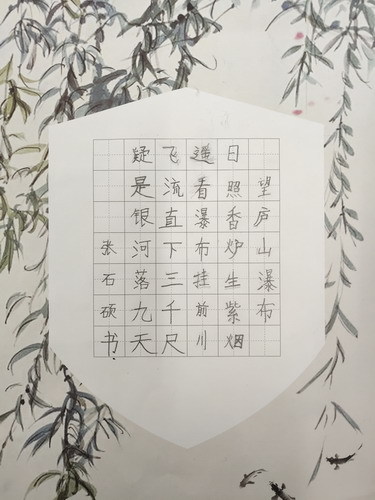 望庐山瀑布
日照香炉生紫烟
遥看瀑布挂前川
飞流直下三千尺
疑是银河落九天
张石硕书